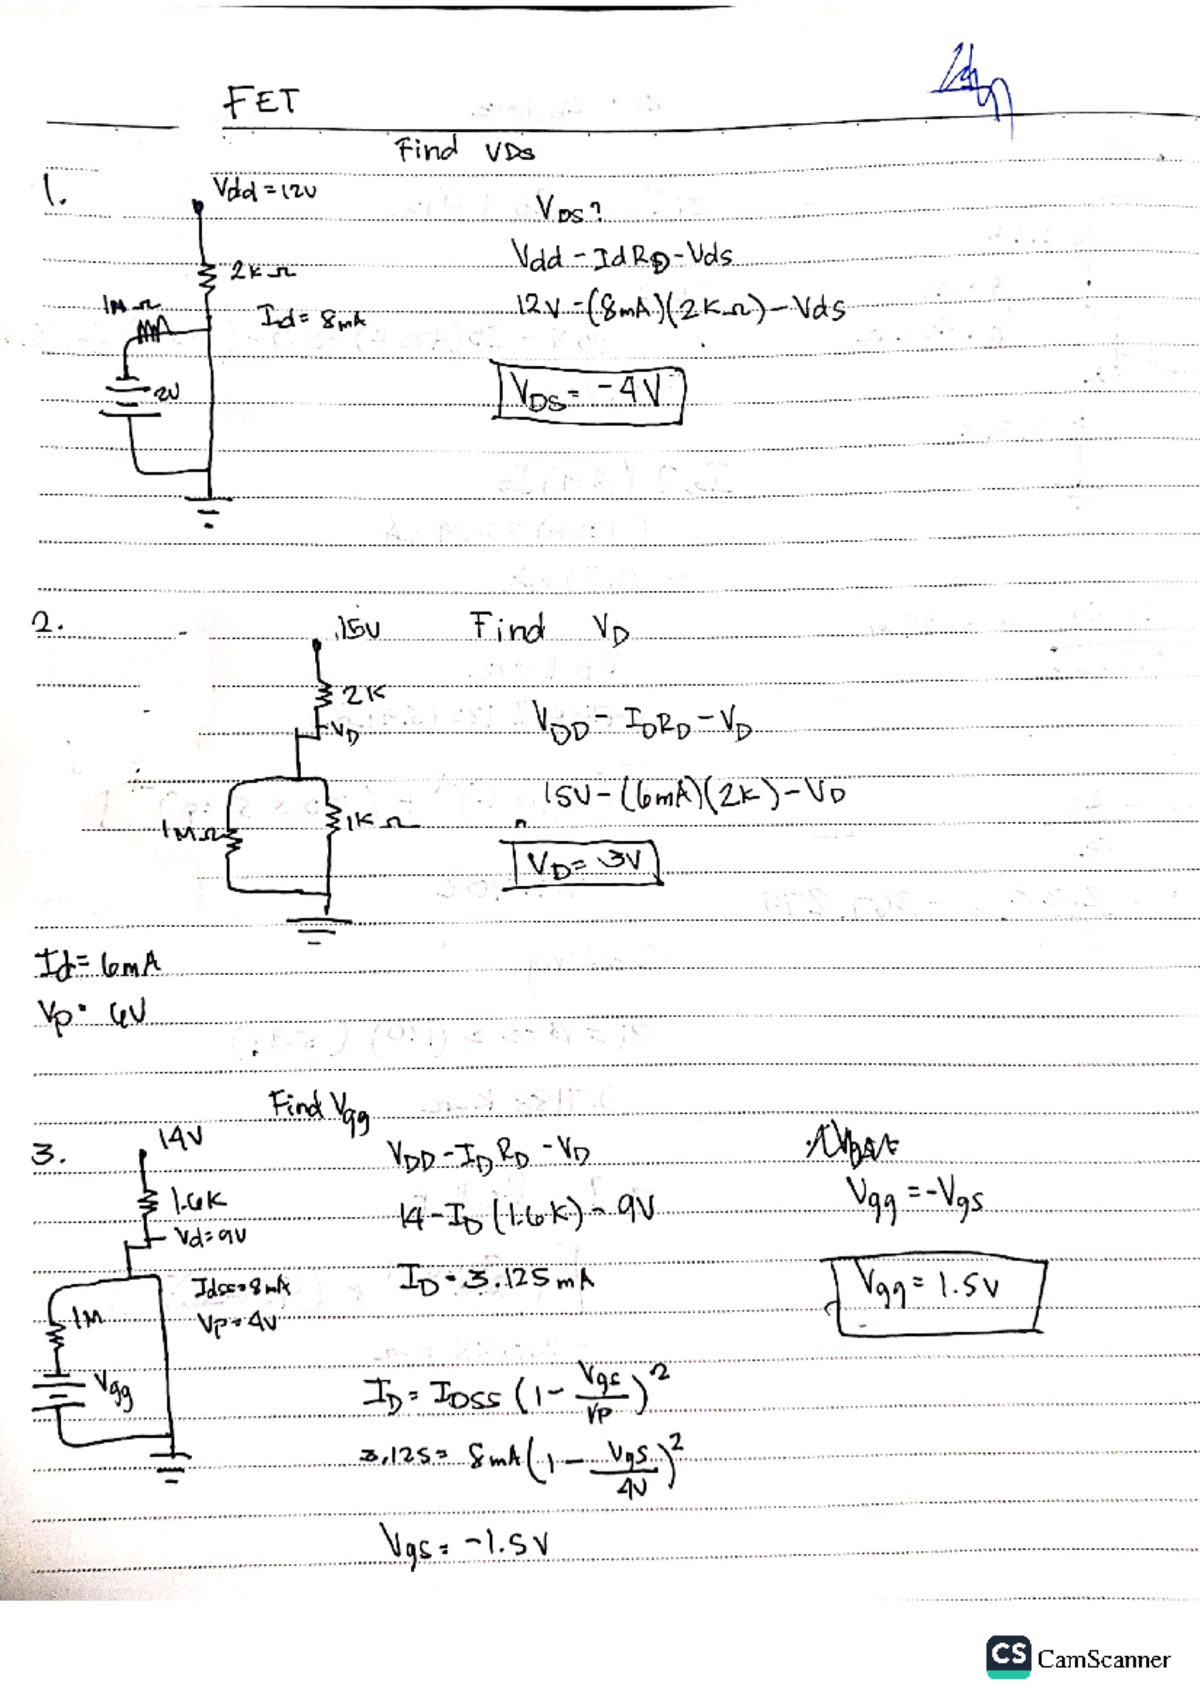 FET
Find VDS
1.
Vdd = 12V
VDS?
Vdd - IdRD - Vds
2KΩ
1MΩ
Id = 8mA
12V - (8mA)(2KΩ) - Vds
2V
VDS = -4V
2.
15V
Find VD
2K
VD
VDD - IDRD - VD
15V - (6mA)(2K) - VD
1MΩ
1KΩ
VD = 3V
Id = 6mA
Vp = 6V
Find Vgg
3.
14V
VDD - IDRD - VD
Vgg = -Vgs
1.6K
14 - ID (1.6K) - 9V
Vd = 9V
Idss = 8mA
ID = 3.125mA
Vgg = 1.5V
1M
Vp = 4V
Vgg
ID = IDSS (1 - Vgs/Vp)²
3.125 = 8mA (1 - Vgs/4V)²
Vgs = -1.5V
CS CamScanner